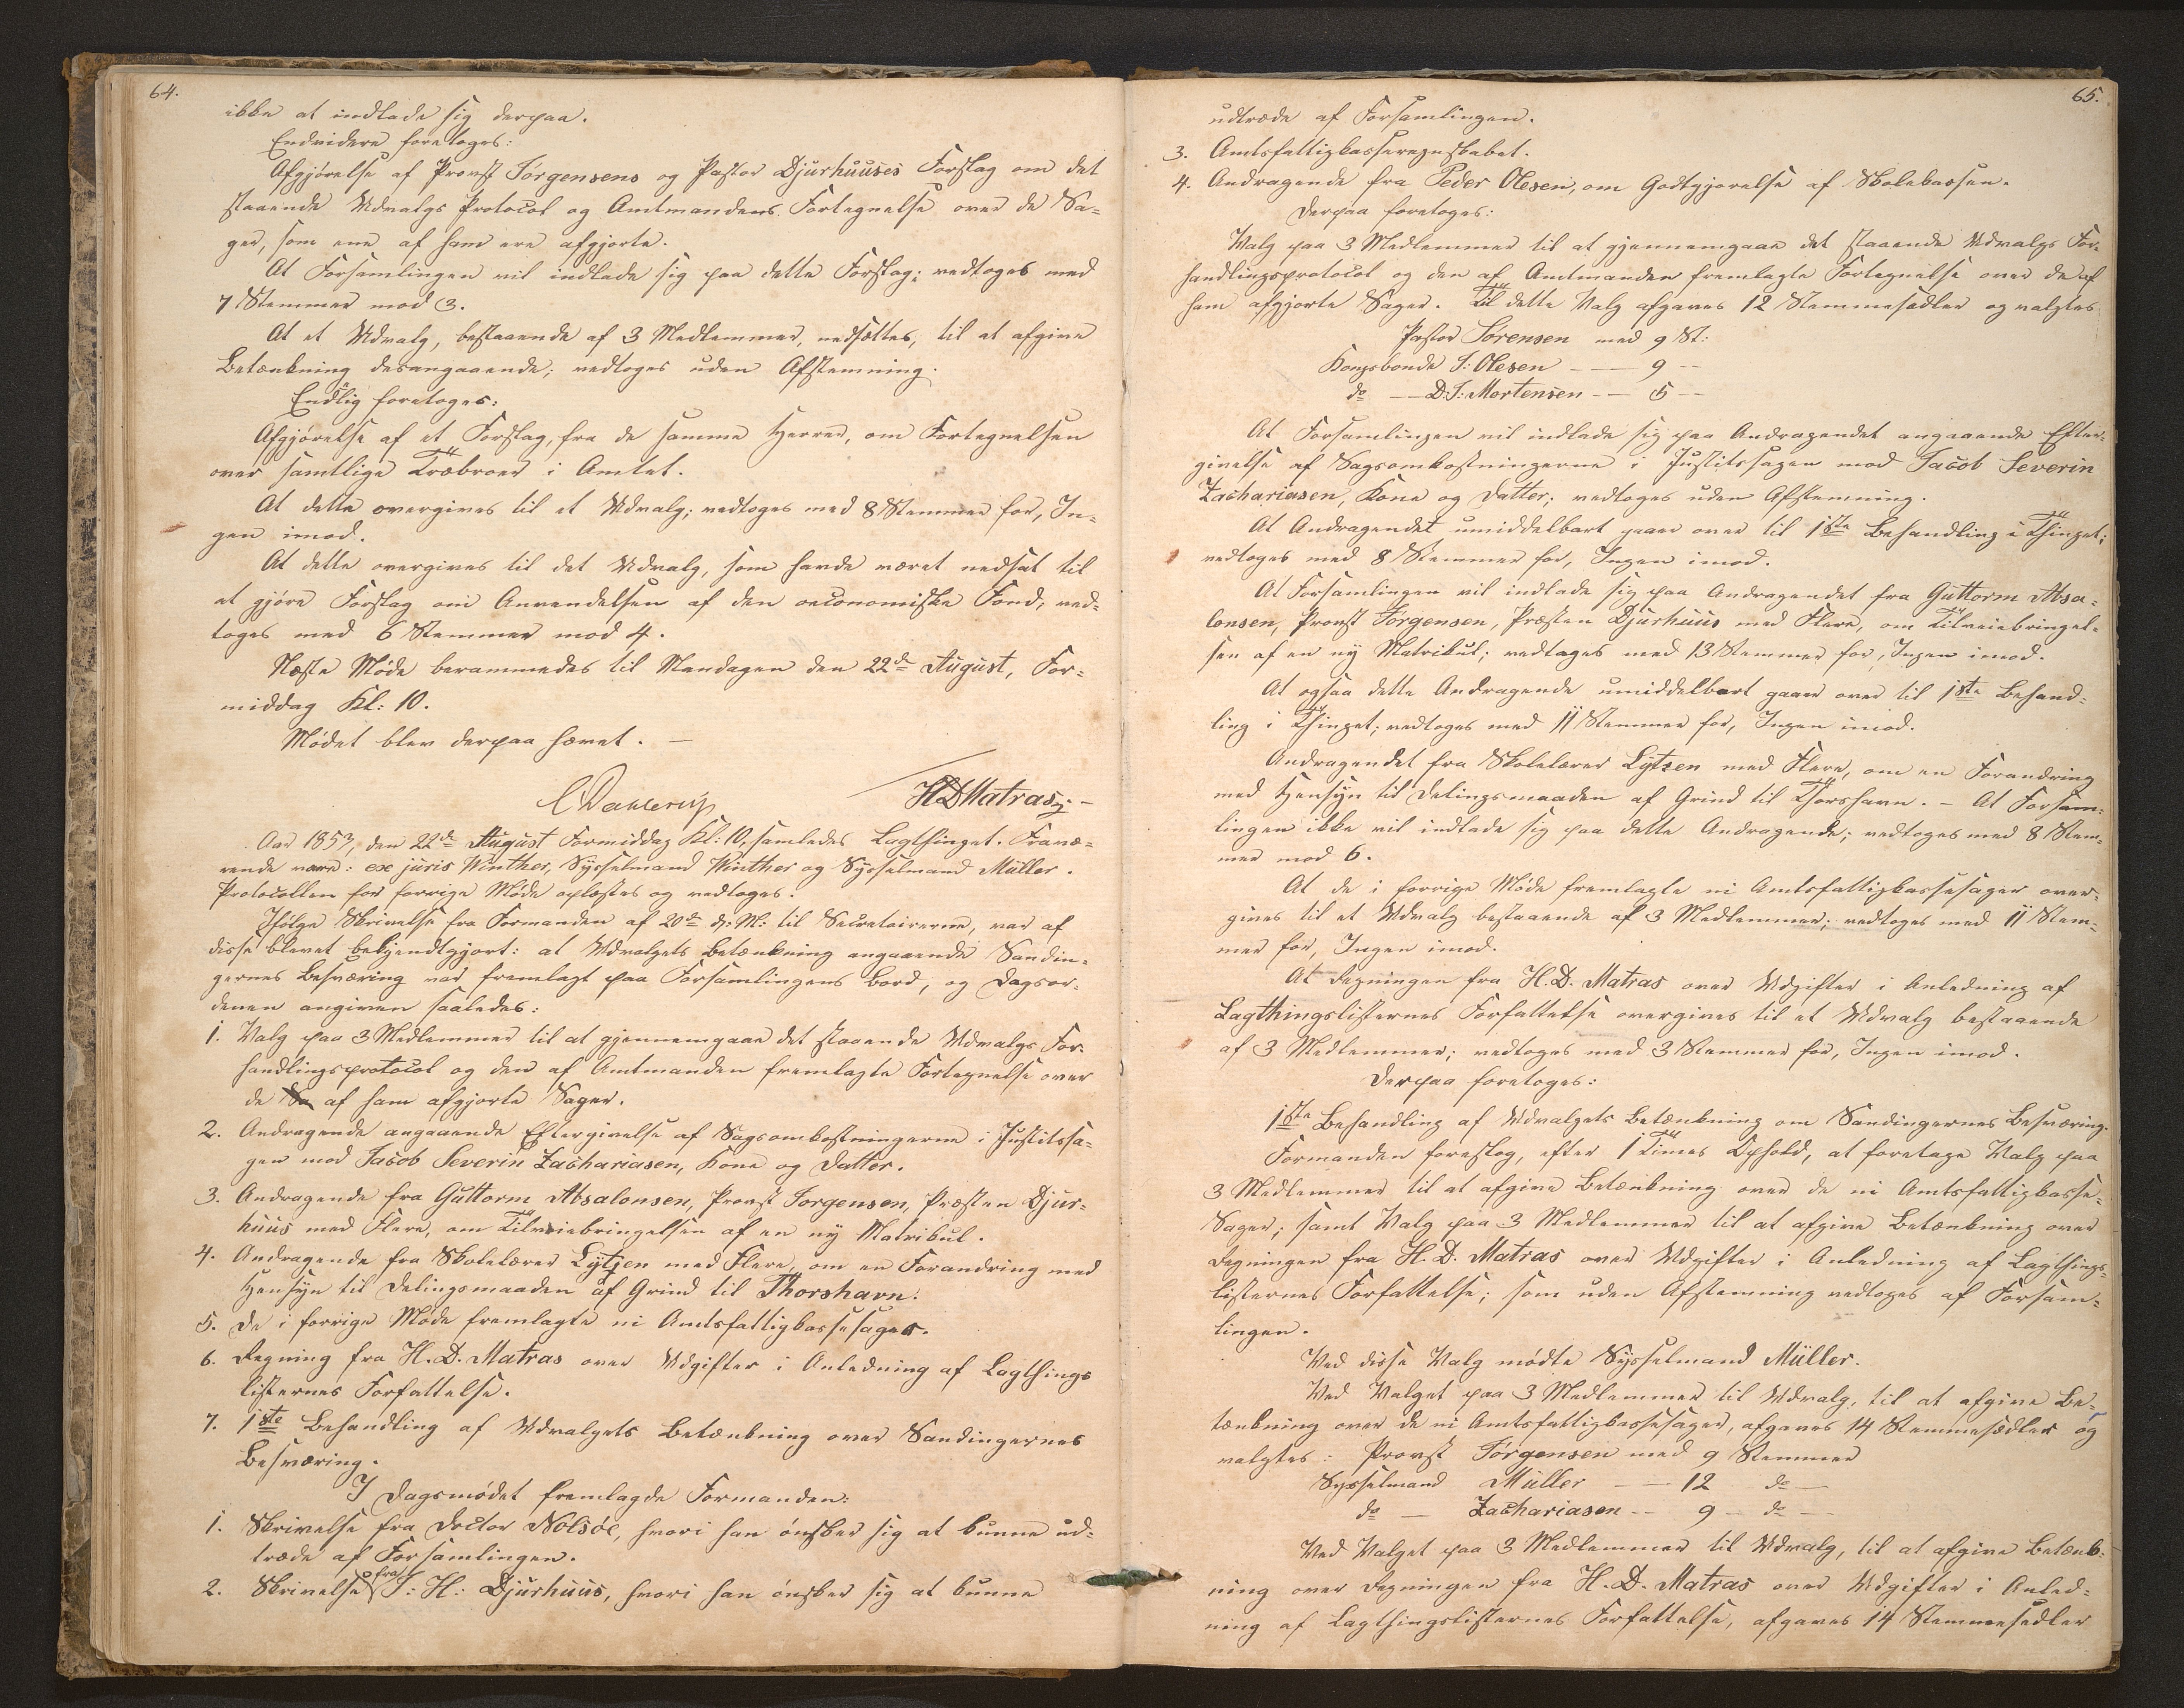 64.
ikke at indlade sig derpaa.
Endvidere foretoges:
Afgjørelse af Provst Jørgensens og Pastor Djurhuuses Forslag om det
staaende Udvalgs Protocol og Amtmandens Fortegnelse over de Sa=
ger, som ene af ham ere afgjorte.
At Forsamlingen vil indlade sig paa dette Forslag; vedtoges med
7 Stemmer mod 3.
At et Udvalg, bestaaende af 3 Medlemmer, nedsættes, til at afgive
Betænkning desangaaende; vedtoges uden Afstemning.
Endlig foretoges:
Afgjørelse af et Forslag, fra de samme Herrer, om Fortegnelsen
over samtlige Træbroer i Amtet.
At dette overgives til et Udvalg; vedtoges med 8 Stemmer for, In=
gen imod.
At dette overgives til det Udvalg, som havde været nedsat til
at gjøre Forslag om Anvendelsen af den oeconomiske Fond, ved=
toges med 6 Stemmer mod 4.
Næste Møde berammedes til Mandagen den 22de August, For=
middag Kl: 10.
Mødet blev derpaa hævet. —
CDahlerup HDMatras
Aar 1853, den 22de August Formiddag Kl: 10, samledes Lagthinget. Fravæ=
rende vare: exe juris Winther, Sysselmand Winther og Sysselmand Müller.
Protocollen for forrige Møde oplæstes og vedtoges.
Ifølge Skrivelse fra Formanden af 20de d: M: til Secretairerne, var af
disse blevet bekjendtgjort: at Udvalgets Betænkning angaaende Sandin=
gernes Besværing var fremlagt paa Forsamlingens Bord, og Dagsor=
denen angiven saaledes:
1. Valg paa 3 Medlemmer til at gjennemgaae det staaende Udvalgs For=
handlingsprotocol og den af Amtmanden fremlagte Fortegnelse over
de Sa af ham afgjorte Sager.
2. Andragende angaaende Eftergivelse af Sagsomkostningerne i Justitssa=
gen mod Jacob Severin Zachariasen, Kone og Datter.
3. Andragende fra Guttorm Absalonsen, Provst Jorgensen, Præsten Djur=
huus med Flere, om Tilveiebringelsen af en ny Matrikul.
4. Andragende fra Skolelærer Lützen med Flere, om en Forandring med
Hensyn til Delingsmaaden af Grind til Thorshavn.
5. De i forrige Møde fremlagte ni Amtsfattigkassesager.
6. Regning fra H. D. Matras over Udgifter i Anledning af Lagthings
listernes Forfattelse.
7. 1ste Behandling af Udvalgets Betænkning over Sandingernes
Besværing.
I Dagsmødet fremlagde Formanden:
1. Skrivelse fra Doctor Nolsöe, hvori han ønsker sig at kunne ud=
træde af Forsamlingen.
2. Skrivelse fra J: H: Djurhuus, hvori han ønsker sig at kunne
65.
udtræde af Forsamlingen.
3. Amtsfattigkasseregnskabet.
4. Andragende fra Peder Olesen, om Godtgjorelse af Skolekassen.
Derpaa foretoges:
Valg paa 3 Medlemmer til at gjennemgaae det staaende Udvalgs For=
handlingsprotocol og den af Amtmanden fremlagte Fortegnelse over de af
ham afgjorte Sager. Til dette Valg afgaves 12 Stemmesedler og valgtes
Pastor Sørensen med 9 St:
Kongsbonde J: Olesen — 9 —
do — D: J: Mortensen — 5 —
At Forsamlingen vil indlade sig paa Andragendet angaaende Efter=
givelse af Sagsomkostningerne i Justitssagen mod Jacob Severin
Zachariasen, Kone og Datter; vedtoges uden Afstemning.
At Andragendet umiddelbart gaaer over til 1ste Behandling i Thinget;
vedtoges med 8 Stemmer for, Ingen imod.
At Forsamlingen vil indlade sig paa Andragendet fra Guttorm Absa=
lonsen, Provst Jørgensen, Præsten Djurhuus med Flere, om Tilveiebringel=
sen af en ny Matrikul; vedtoges med 13 Stemmer for, Ingen imod.
At ogsaa dette Andragende umiddelbart gaaer over til 1ste Behand=
ling i Thinget; vedtoges med 11 Stemmer for, Ingen imod.
Andragendet fra Skolelærer Lützen med Flere, om en Forandring
med Hensyn til Delingsmaaden af Grind til Thorshavn. — At Forsam=
lingen ikke vil indlade sig paa dette Andragende; vedtoges med 8 Stem=
mer mod 6.
At de i forrige Møde fremlagte ni Amtsfattigkassesager over=
gives til et Udvalg bestaaende af 3 Medlemmer; vedtoges med 11 Stem=
mer for, Ingen imod.
At Regningen fra H. D. Matras over Udgifter i Anledning af
Lagthingslisternes Forfattelse overgives til et Udvalg bestaaende
af 3 Medlemmer; vedtoges med 3 Stemmer for, Ingen imod.
Derpaa foretoges:
1ste Behandling af Udvalgets Betænkning om Sandingernes Besværing.
Formanden foreslog, efter 1 Times Ophold, at foretage Valg paa
3 Medlemmer til at afgive Betænkning over de ni Amtsfattigkasse=
Sager; samt Valg paa 3 Medlemmer til at afgive Betænkning over
Regningen fra H. D. Matras over Udgifter i Anledning af Lagthings=
listernes Forfattelse; som uden Afstemning vedtoges af Forsam=
lingen.
Ved disse Valg mødte Sysselmand Müller.
Ved Valget paa 3 Medlemmer til Udvalg, til at afgive Be=
tænkning over de ni Amtsfattigkassesager, afgaves 14 Stemmesedler og
valgtes: Provst Jörgensen med 9 Stemmer
Sysselmand Müller — 12 do —
do — Zachariasen — 9 — do —
Ved Valget paa 3 Medlemmer til Udvalg, til at afgive Betænk=
ning over Regningen fra H. D. Matras over Udgifter i Anled=
ning af Lagthingslisternes Forfattelse, afgaves 14 Stemmesedler